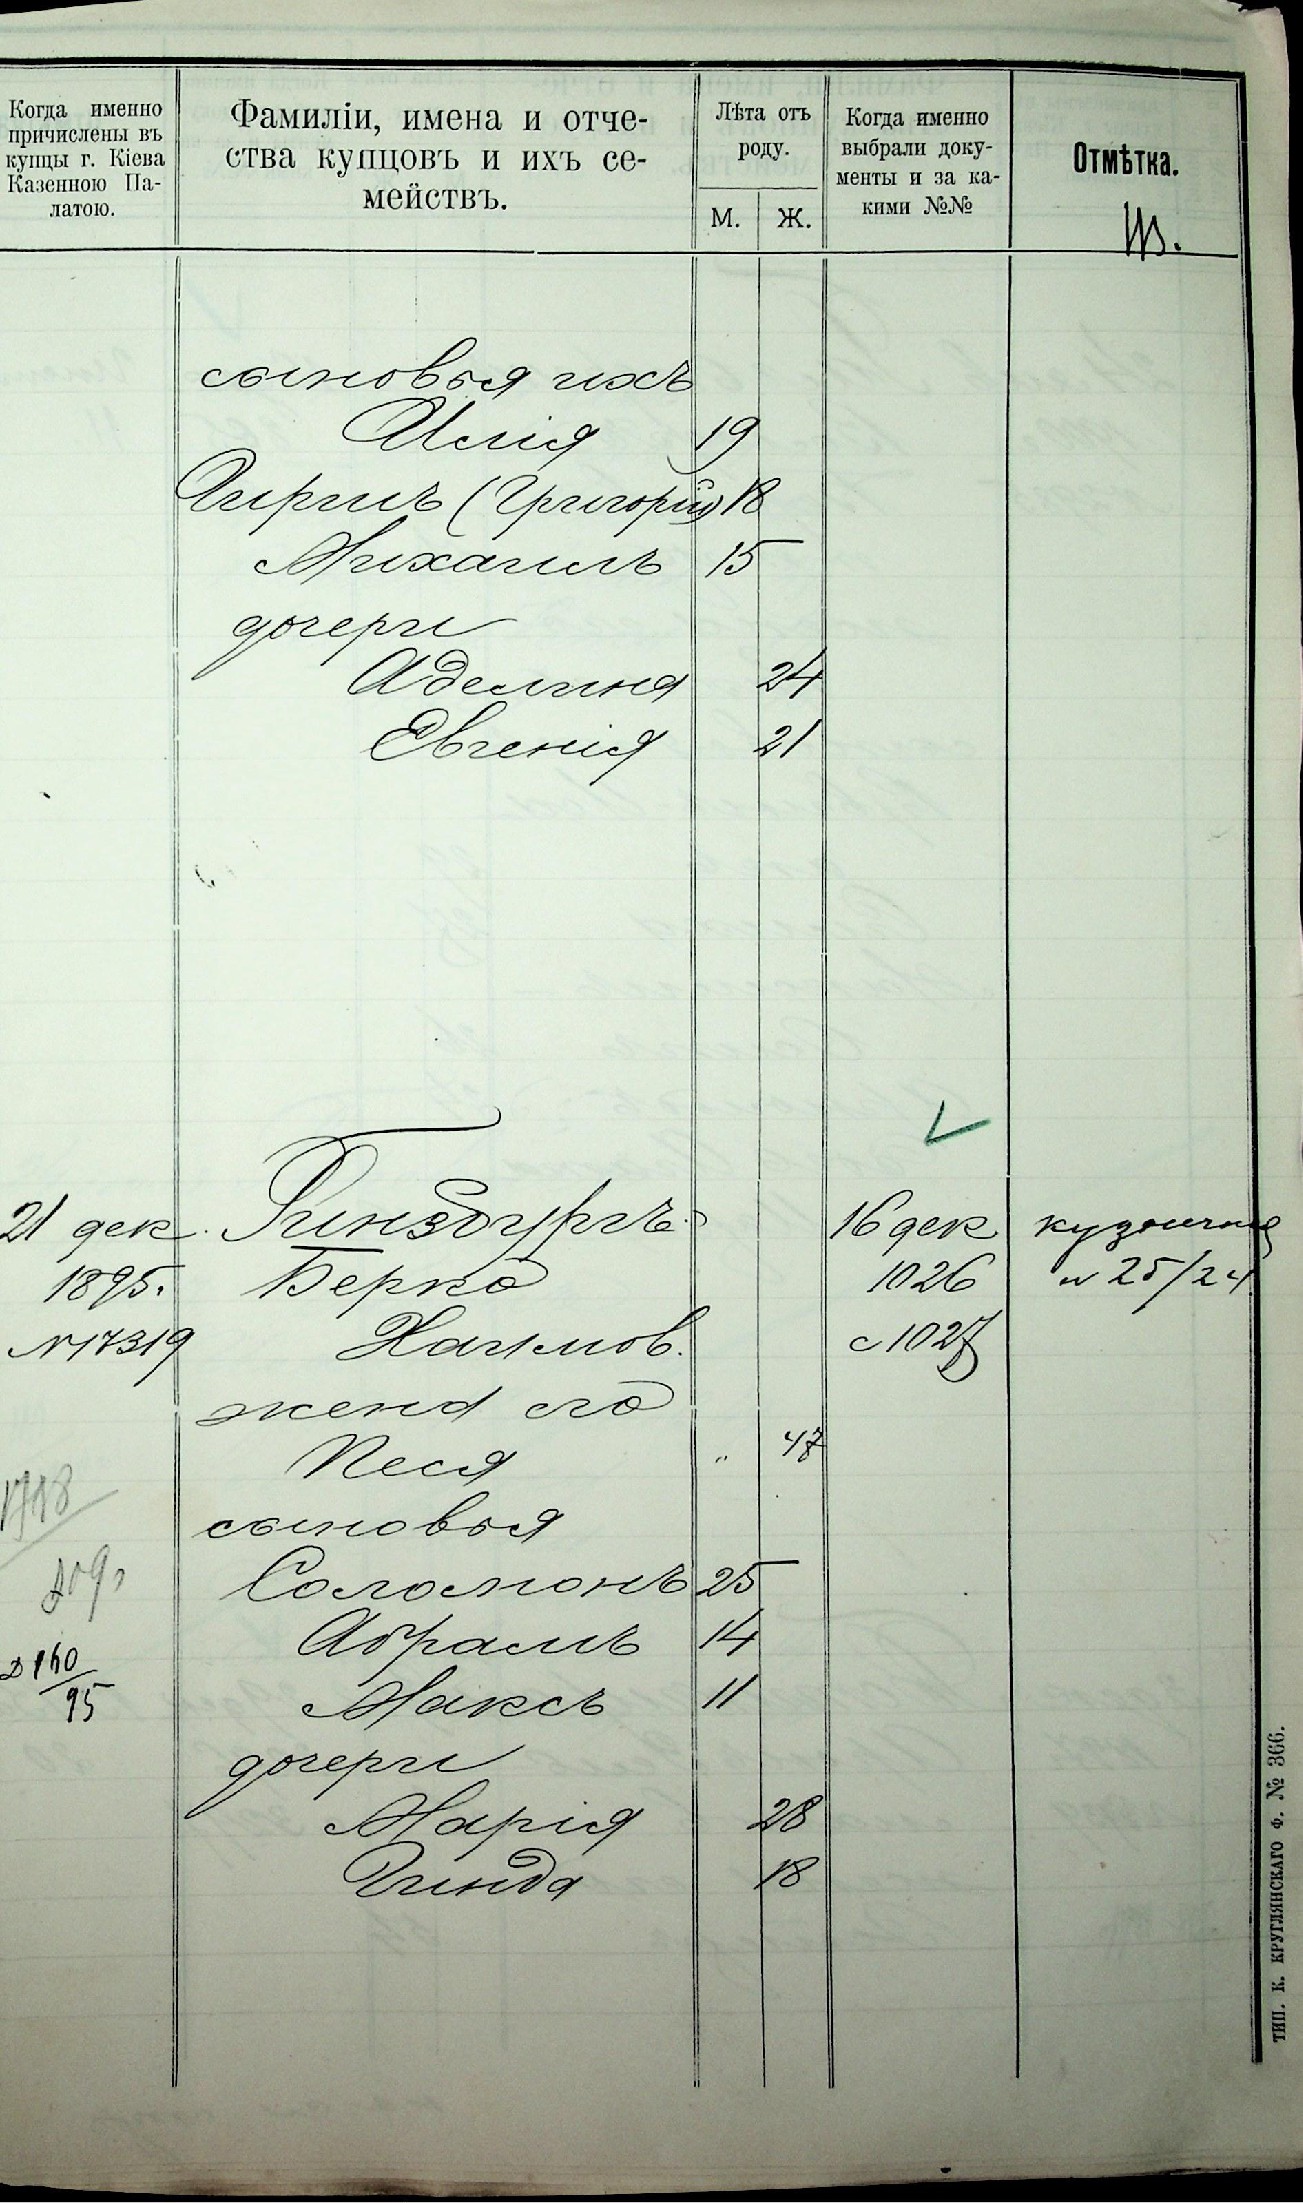 Когда именно
причислены въ
купцы г. Кіева
Казенною Па-
латою.
Фамиліи, имена и отче-
ства купцовъ и ихъ се-
мействъ.
Лѣта отъ
роду.
М.
Ж.
Когда именно
выбрали доку-
менты и за ка-
кими №№
Отмѣтка.
сыновья ихъ
Илія 19
Гиршъ (Григорій) 18
Михаилъ 15
дочери
Аделина 24
Евгенія 21
21 дек. Гинзбургъ 16 дек
1895. Берко 1026 № 25/24
№ 17319 Хаимов. с 1027
жена его
Песя " 47
сыновья
Соломонъ 25
Абрамъ 14
160/95
Максъ 11
дочери
Марія 28
Гинда 18
ТИП. К. КРУГЛЯНСКАГО Ф. № 366.